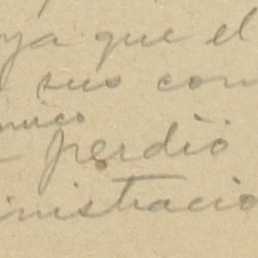 ya que el
sus con
mico
perdió
inistracio